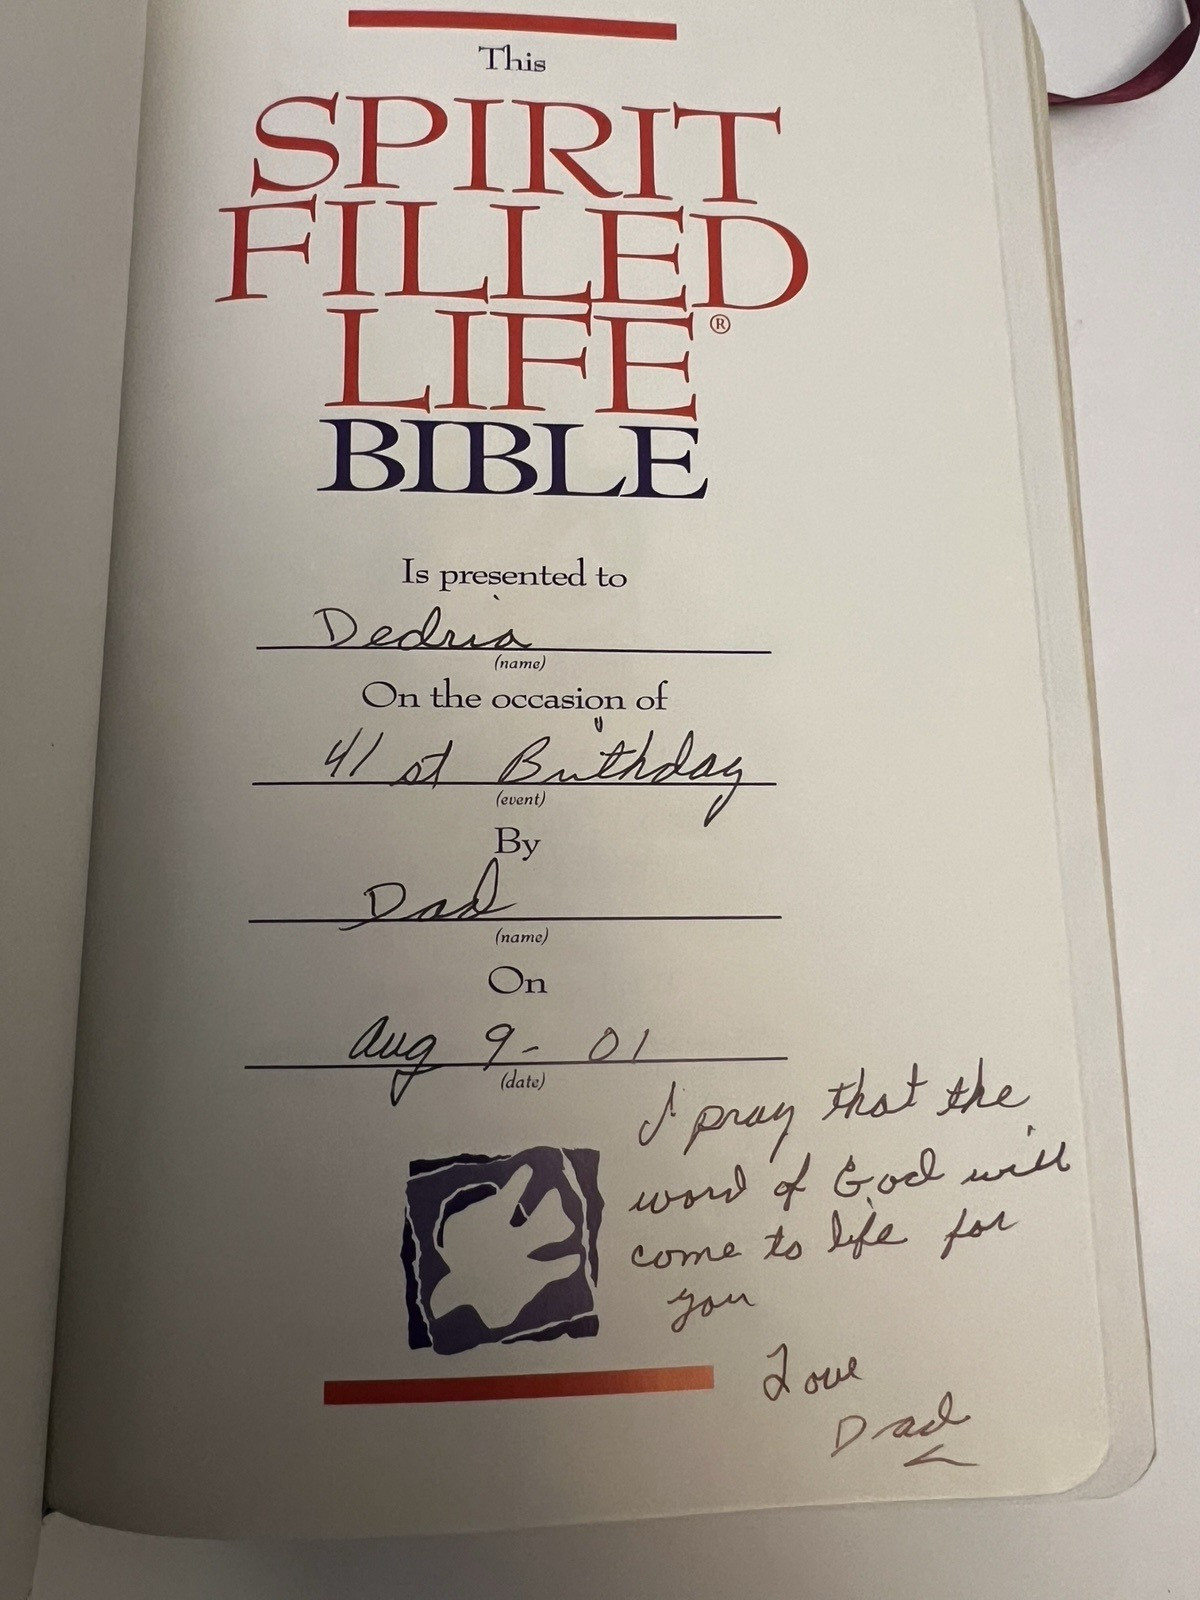 This
SPIRIT
FILLED
LIFE®
BIBLE
Is presented to
Dedria
(name)
On the occasion of
41st Birthday
(event)
By
Dad
(name)
On
Aug 9-01
(date)
I pray that the
word of God will
come to life for
you
Love
Dad